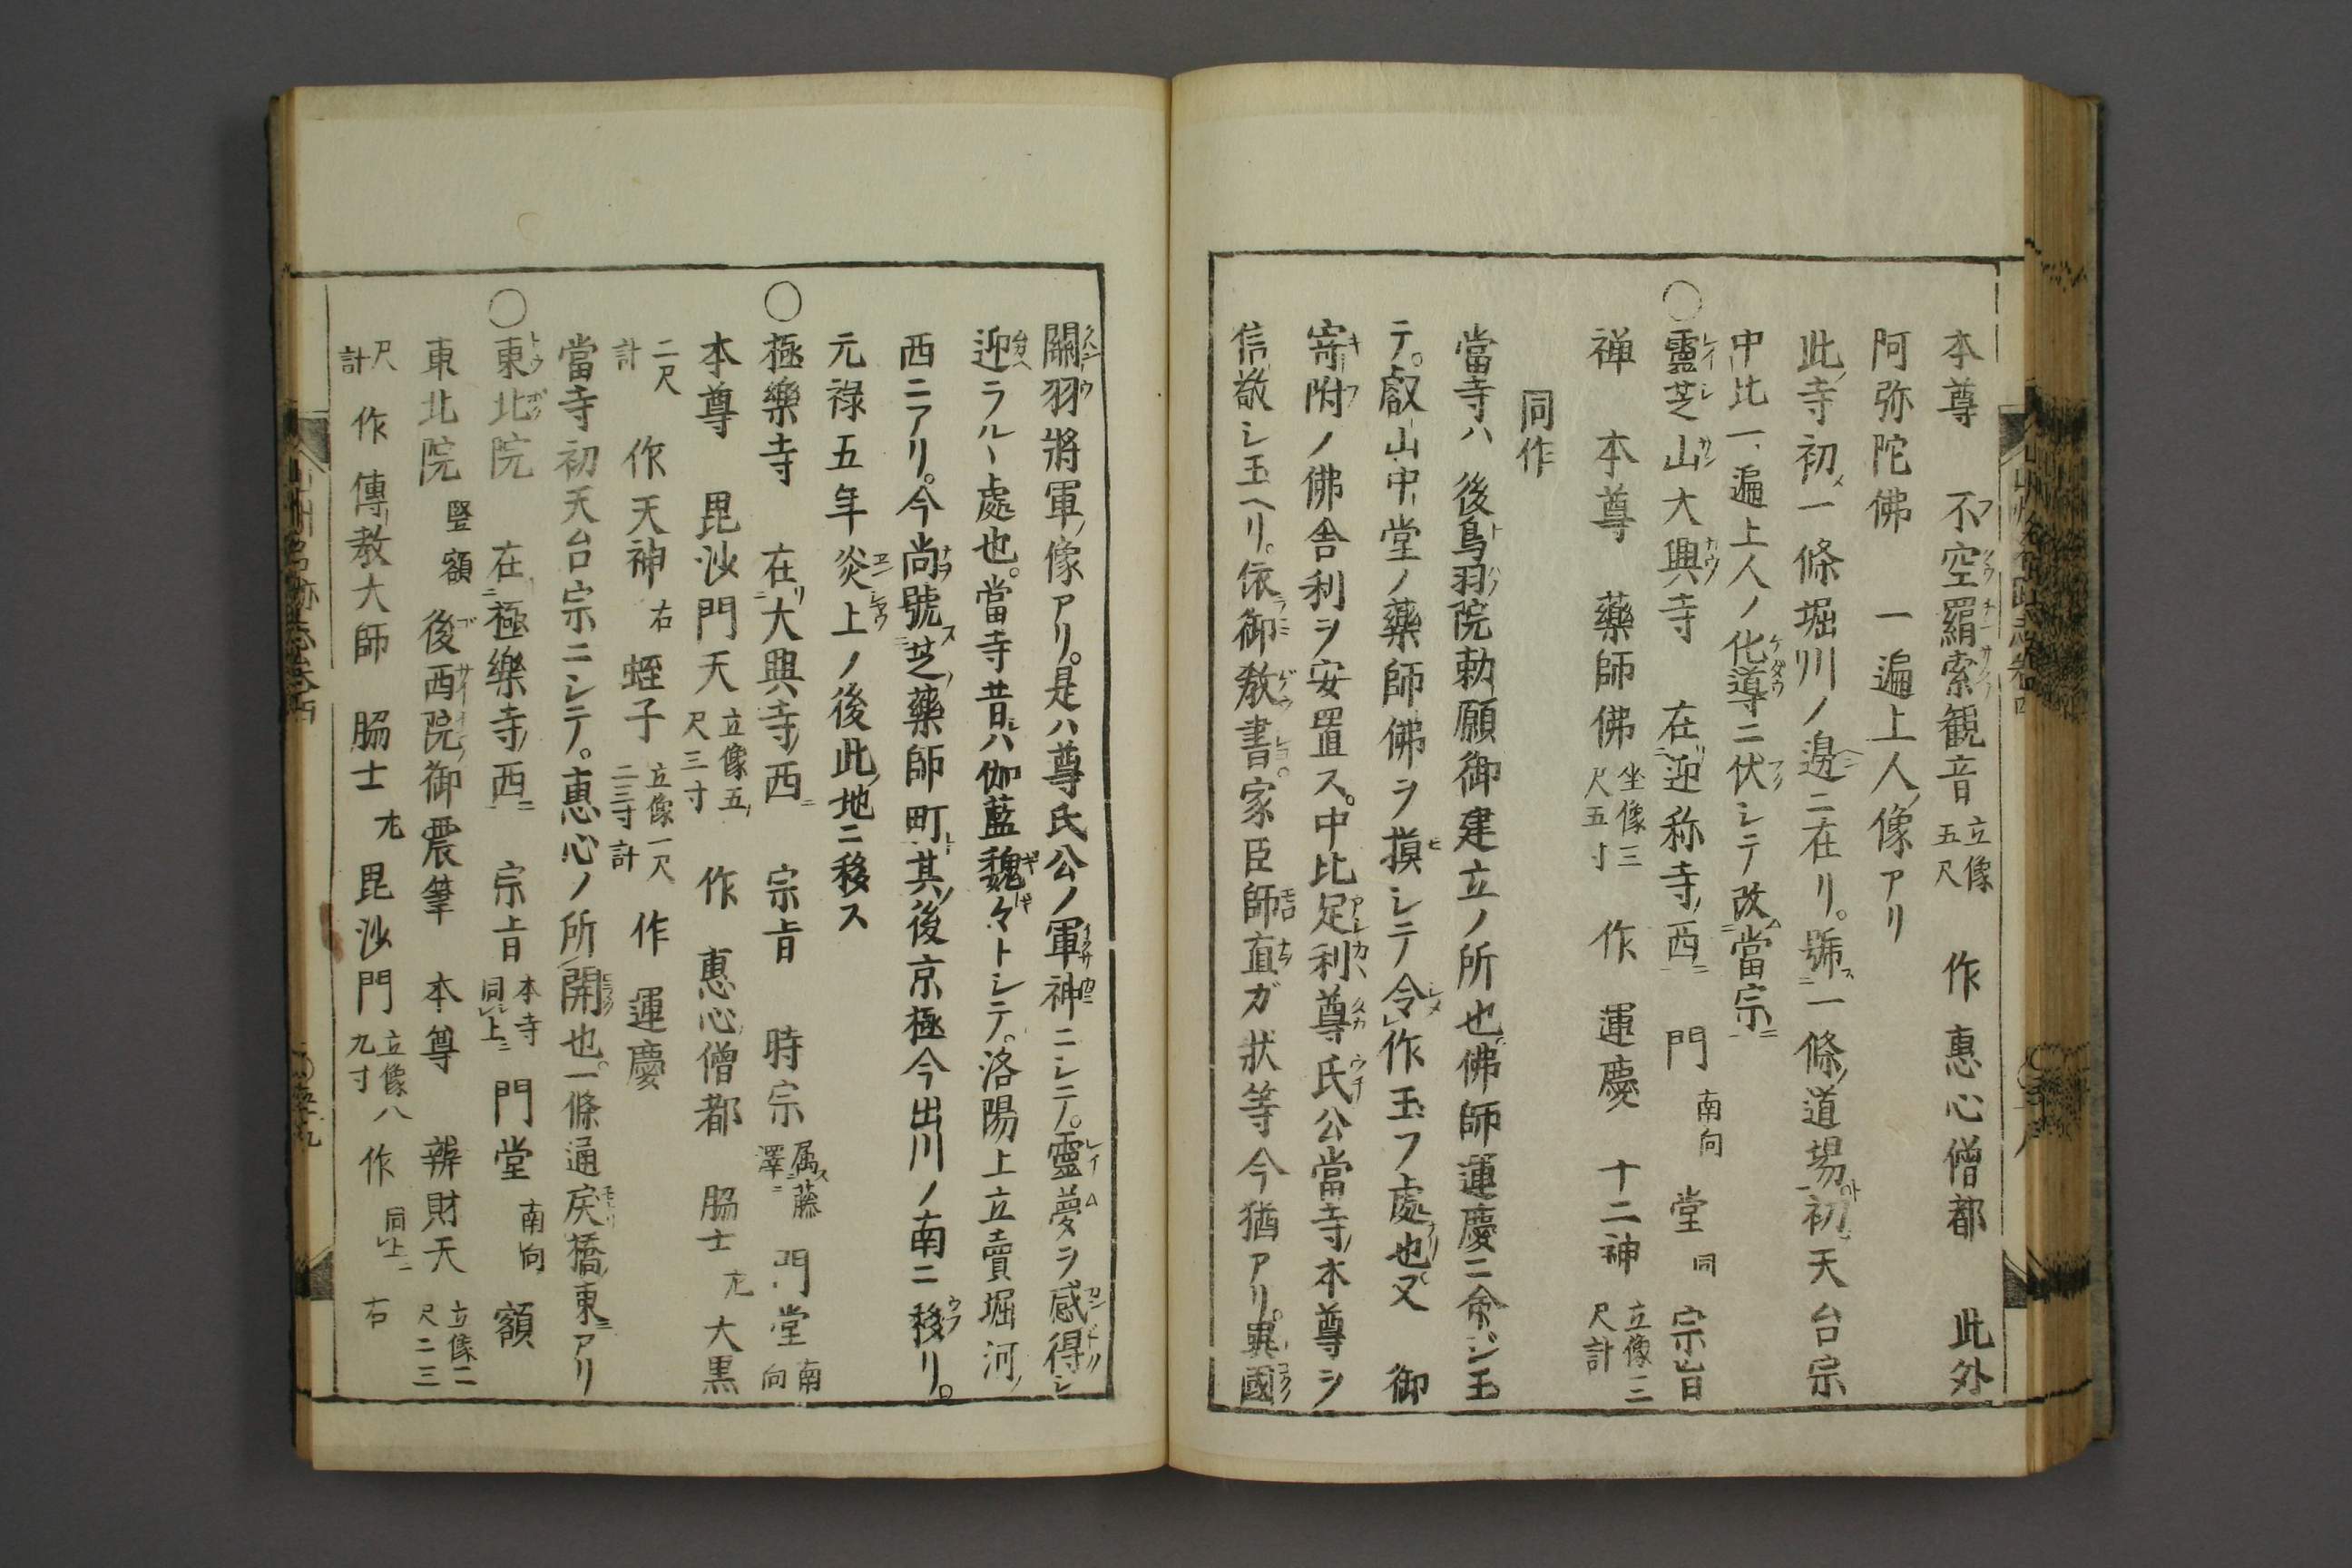 本尊 不空羂索観音 立像五尺 作 惠心僧都 此外
阿弥陀佛 一遍上人ノ像アリ
此寺初メ一條堀川ノ邉ニ在リ。號ス一條ノ道場ト初ハ天台宗
中比一遍上人ノ化導ニ伏シテ改ム當宗ニ
○靈芝山大興寺 在迎称寺ノ西ニ 門 南向 堂 同 宗旨
禅 本尊 藥師佛 坐像三尺五寸 作 運慶 十二神 立像三尺計
同作
當寺ハ 後鳥羽院勅願御建立ノ所也。佛師運慶ニ命ジ玉
テ。叡山中堂ノ藥師佛ヲ摸シテ令作玉フ處也又 御
寄附ノ佛舎利ヲ安置ス。中比足利尊氏公當寺ノ本尊ヲ
信敬シ玉ヘリ。依御教書。家臣師直ガ状等今猶アリ。異國
關羽將軍ノ像アリ。是ハ尊氏公ノ軍神ニシテ。靈夢ヲ感得シ
迎ラルヽ處也。當寺昔ハ伽藍魏々トシテ。洛陽上立賣堀河ノ
西ニアリ。今尚號ス芝ノ藥師町ト其ノ後京極今出川ノ南ニ移リ。
元禄五年炎上ノ後此ノ地ニ移ス
○極樂寺 在リ大興寺ノ西ニ 宗旨 時宗 属ス藤澤ニ 門堂 南向
本尊 毘沙門天 立像五尺三寸 作 惠心僧都 脇士 左 大黒
二尺計 作 天神 右 蛭子 立像一尺二三寸計 作 運慶
當寺初天台宗ニシテ。惠心ノ所開也。一條通戻橋ノ東ニアリ
○東北院 在極樂寺ノ西ニ 宗旨 本寺同上ニ 門堂 南向 額
東北院 竪額 後西院ノ御震筆 本尊 辨財天 立像二尺二三
尺計 作 傳教大師 脇士 左 毘沙門 立像八九寸 作 同上ニ 右